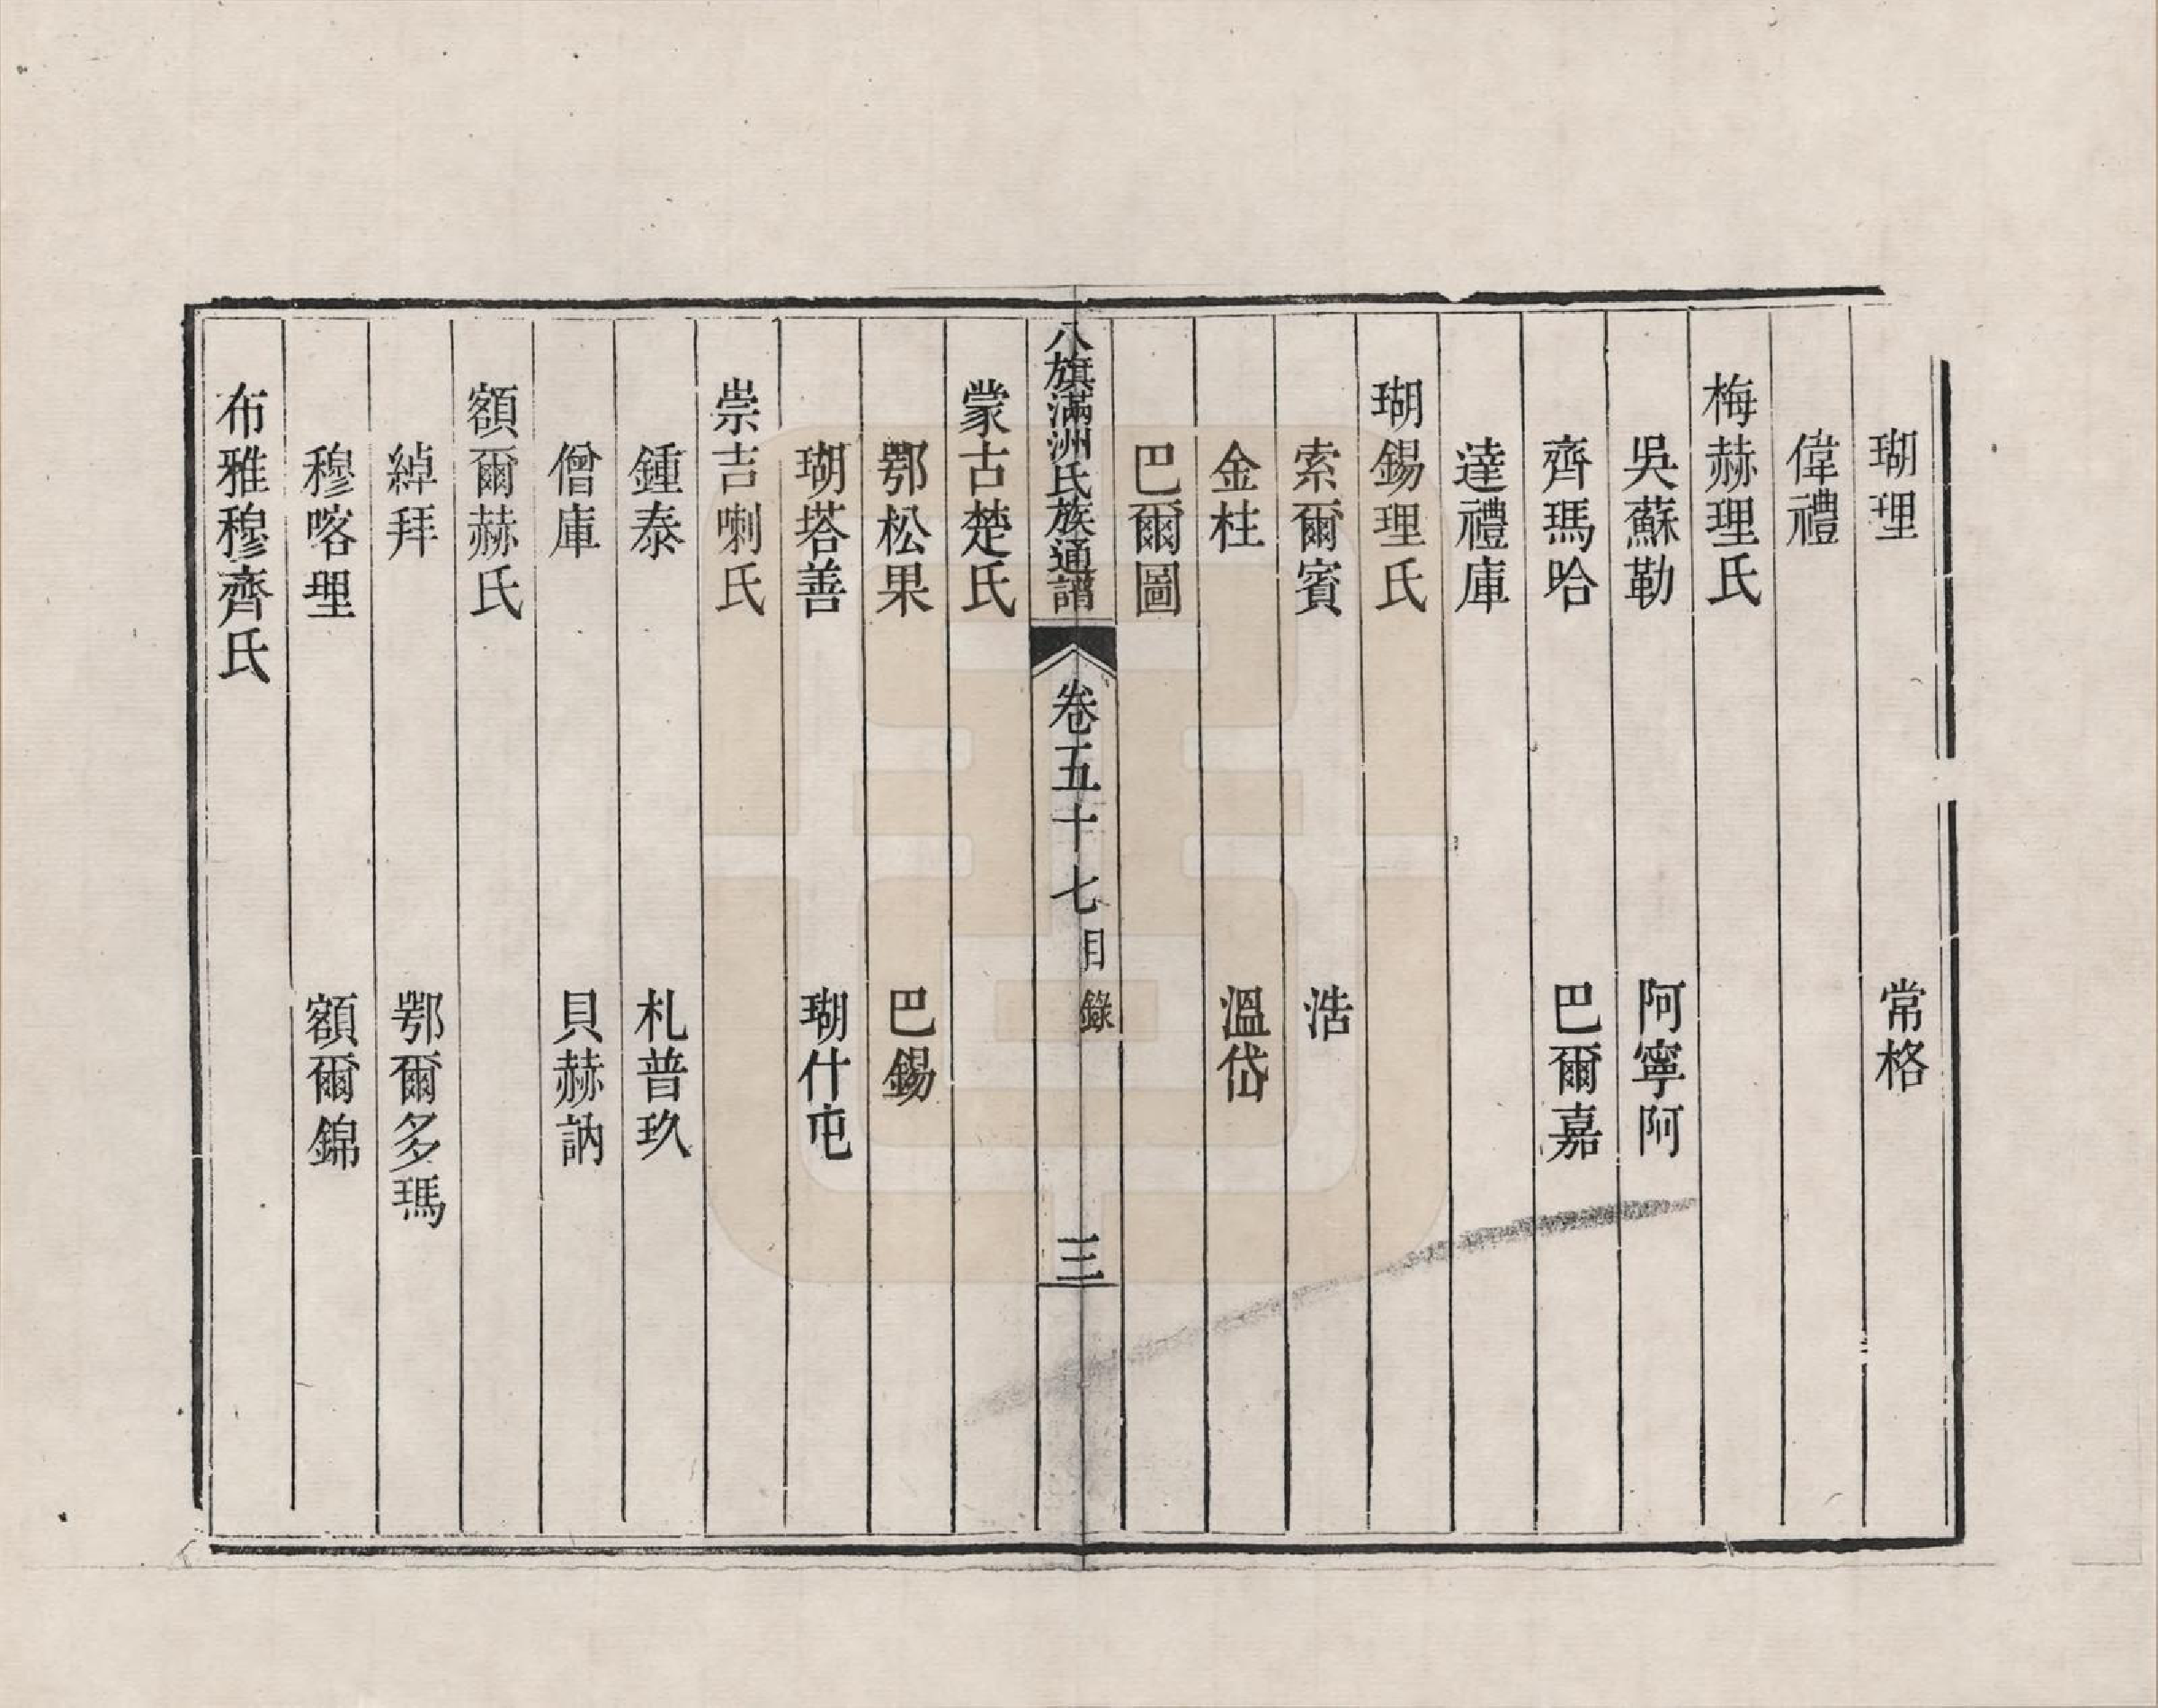 瑚理　常格
偉禮
梅赫理氏
吳蘇勒　阿寧阿
齊瑪哈　巴爾嘉
達禮庫
瑚錫理氏
索爾賓　浩
金柱　溫岱
巴爾圖
八旗滿洲氏族通譜　卷五十七目錄　三
蒙古楚氏
鄂松果　巴錫
瑚塔善　瑚什屯
崇吉喇氏
鍾泰　札普玖
僧庫　貝赫訥
額爾赫氏
綽拜　鄂爾多瑪
穆喀理　額爾錦
布雅穆齊氏